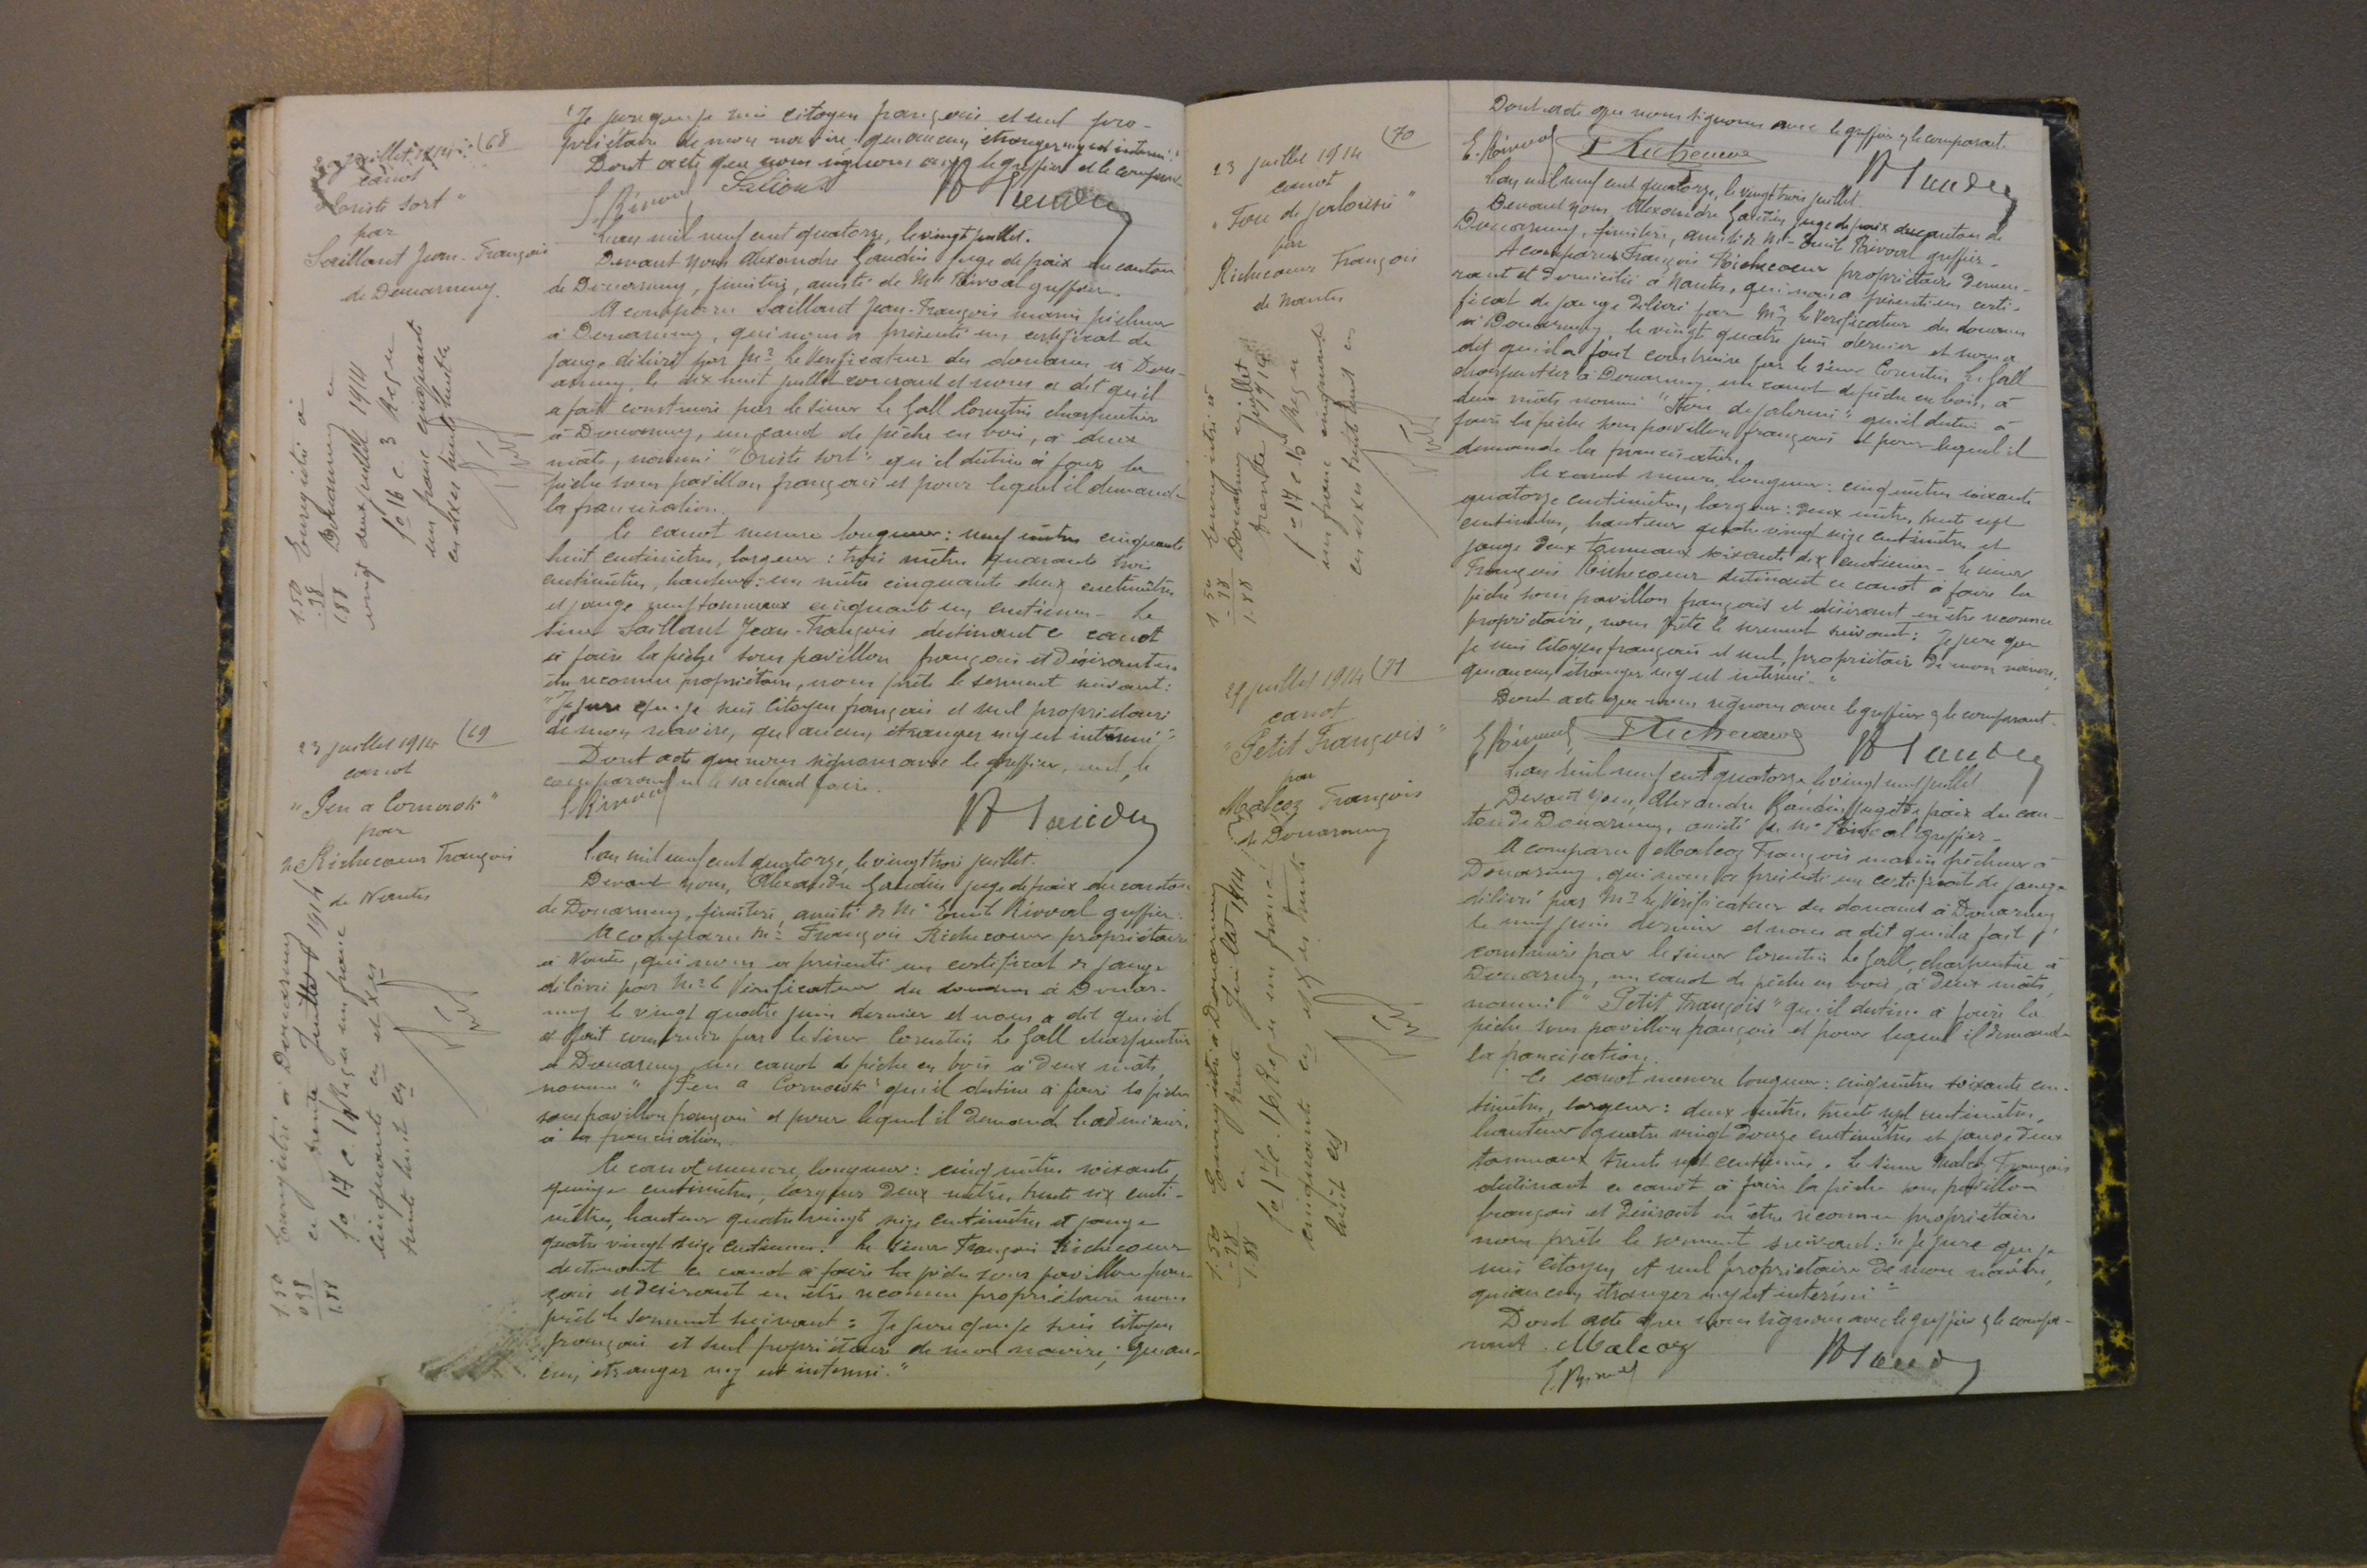 "Je jure que je suis citoyen français et seul pro-
priétaire de mon navire, qu'aucun étranger n'y est intérressé."
Dont acte que nous signons avec le greffier et le comparant
E. Rivoal Salion
20 juillet 1914 (68
canot
"Triste sort"
par
Saillant Jean-François
de Douarnenez.
L'an mil neuf cent quatorze, le vingt juillet.
Devant nous Alexandre Gaudin juge de paix du canton
de Douarnenez, finistère, assisté de Me Rivoal greffier.
A comparu Saillant Jean-François marin pêcheur
à Douarnenez, qui nous a présenté un certificat de
jauge délivré par Mr le Vérificateur des douanes à Dou-
arnenez, le dix huit juillet courant et nous a dit qu'il
a fait construire par le sieur Le Gall Corentin charpentier
à Douarnenez, un canot de pêche en bois, à deux
mâts, nommé "Triste sort" qu'il destine à faire la
pêche sous pavillon français et pour lequel il demande
la francisation.
Ce canot mesure longueur: neuf mètres cinquante
huit centimètres, largeur: trois mètres quarante trois
centimètres, hauteur: un mètre cinquante deux centimètres
et jauge neuf tonneaux cinquante un centièmes - Le
sieur Saillant Jean-François destinant ce canot
à faire la pêche sous pavillon français et désirant en
être reconnu propriétaire, nous prête le serment suivant:
"Je jure que je suis citoyen français et seul propriétaire
de mon navire, qu'aucun étranger n'y est intéressé"
Dont acte que nous signons avec le greffier, seul, le
comparant ne le sachant faire.
E. Rivoal
Enregistré à
Douarnenez le
vingt deux juillet 1914
fo 16 c 3 Reçu
un franc cinquante
en sixes trente huit
1.50
.38
1.88
23 juillet 1914 (69
canot
"Pen a Cornook"
par
Mr Richecoeur François
de Nantes
L'an mil neuf cent quatorze, le vingt trois juillet.
Devant nous, Alexandre Gaudin juge de paix du canton
de Douarnenez, finistère, assisté de Me Emile Rivoal greffier.
A comparu Mr François Richecoeur propriétaire
à Nantes, qui nous a présenté un certificat de jauge
délivré par Mr le Vérificateur des douanes à Douar-
nenez le vingt quatre juin dernier et nous a dit qu'il
a fait construire par le sieur Corentin Le Gall charpentier
à Douarnenez un canot de pêche en bois à deux mâts,
nommé "Pen a Cornook" qu'il destine à faire la pêche
sous pavillon français et pour lequel il demande
à la francisation.
Ce canot mesure, longueur: cinq mètres soixante
quinze centimètres, largeur deux mètres, trente six centi-
mètres, hauteur quatre vingt seize centimètres et jauge
quatre vingt seize centièmes. Le sieur François Richecoeur
destinant ce canot à faire la pêche sous pavillon fran-
çais et désirant en être reconnu propriétaire nous
prête le serment suivant: Je jure que je suis citoyen
français et seul propriétaire de mon navire, qu'au-
cun étranger n'y est intéressé."
Enregistré à Douarnenez
le trente juillet 1914
fo 17 c Reçu un franc
cinquante en sixes
trente huit cs
1.50
0.38
1.88
Dont acte que nous signons avec le greffier & le comparant.
E. Rivoal F Richecoeur
23 juillet 1914 (70
canot
"Fou de jalousie"
par
Richecoeur François
de Nantes
L'an mil neuf cent quatorze, le vingt trois juillet.
Devant nous Alexandre Gaudin juge de paix du canton de
Douarnenez, finistère, assisté de Me Emile Rivoal greffier.
A comparu François Richecoeur propriétaire demeu-
rant et domicilié à Nantes, qui nous a présenté un certi-
ficat de jauge délivré par Mr le Vérificateur des douanes
à Douarnenez, le vingt quatre juin dernier et nous a
dit qu'il a fait construire par le sieur Corentin Le Gall
charpentier à Douarnenez, un canot de pêche en bois, à
deux mâts nommé "Fou de jalousie" qu'il destine à
faire la pêche sous pavillon français et pour lequel il
demande la francisation.
Ce canot mesure, longueur: cinq mètres soixante
quatorze centimètres, largeur: deux mètres, trente sept
centimètres, hauteur quatre vingt seize centimètres et
jauge deux tonneaux soixante dix centièmes - Le sieur
François Richecoeur destinant ce canot à faire la
pêche sous pavillon français et désirant en être reconnu
propriétaire, nous prête le serment suivant: Je jure que
je suis citoyen français et seul propriétaire de mon navire,
qu'aucun étranger n'y est intéressé."
Dont acte que nous signons avec le greffier & le comparant.
E. Rivoal F Richecoeur
Enregistré à
Douarnenez le
trente juillet 1914
fo 17 c 15 Reçu
un franc cinquante
en sixes trente huit cs
1.50
.38
1.88
29 juillet 1914 (71
canot
"Petit François"
par
Malcoz François
de Douarnenez
L'an mil neuf cent quatorze le vingt neuf juillet
Devant nous, Alexandre Gaudin juge de paix du can-
ton de Douarnenez, assisté de Me Rivoal greffier
A comparu Malcoz François marin pêcheur à
Douarnenez, qui nous a présenté un certificat de jauge
délivré par Mr le Vérificateur des douanes à Douarnenez
le neuf juin dernier et nous a dit qu'il a fait
construire par le sieur Corentin Le Gall, charpentier à
Douarnenez, un canot de pêche en bois, à deux mâts,
nommé "Petit François" qu'il destine à faire la
pêche sous pavillon français et pour lequel il demande
la francisation.
Ce canot mesure longueur: cinq mètres soixante cen-
timètres, largeur: deux mètres trente sept centimètres,
hauteur quatre vingt douze centimètres et jauge deux
tonneaux trente sept centièmes. Le sieur Malcoz François
destinant ce canot à faire la pêche sous pavillon
français et désirant en être reconnu propriétaire
nous prête le serment suivant: "Je jure que je
suis citoyen et seul propriétaire de mon navire,
qu'aucun étranger n'y est intéressé"
Dont acte que nous signons avec le greffier & le compa-
rant. Malcoz
E. Rivoal
Enregistré à Douarnenez
le trente juillet 1914
fo 17 c. 16 Reçu un franc
cinquante cs sixes trente
huit cs
1.50
.38
1.88